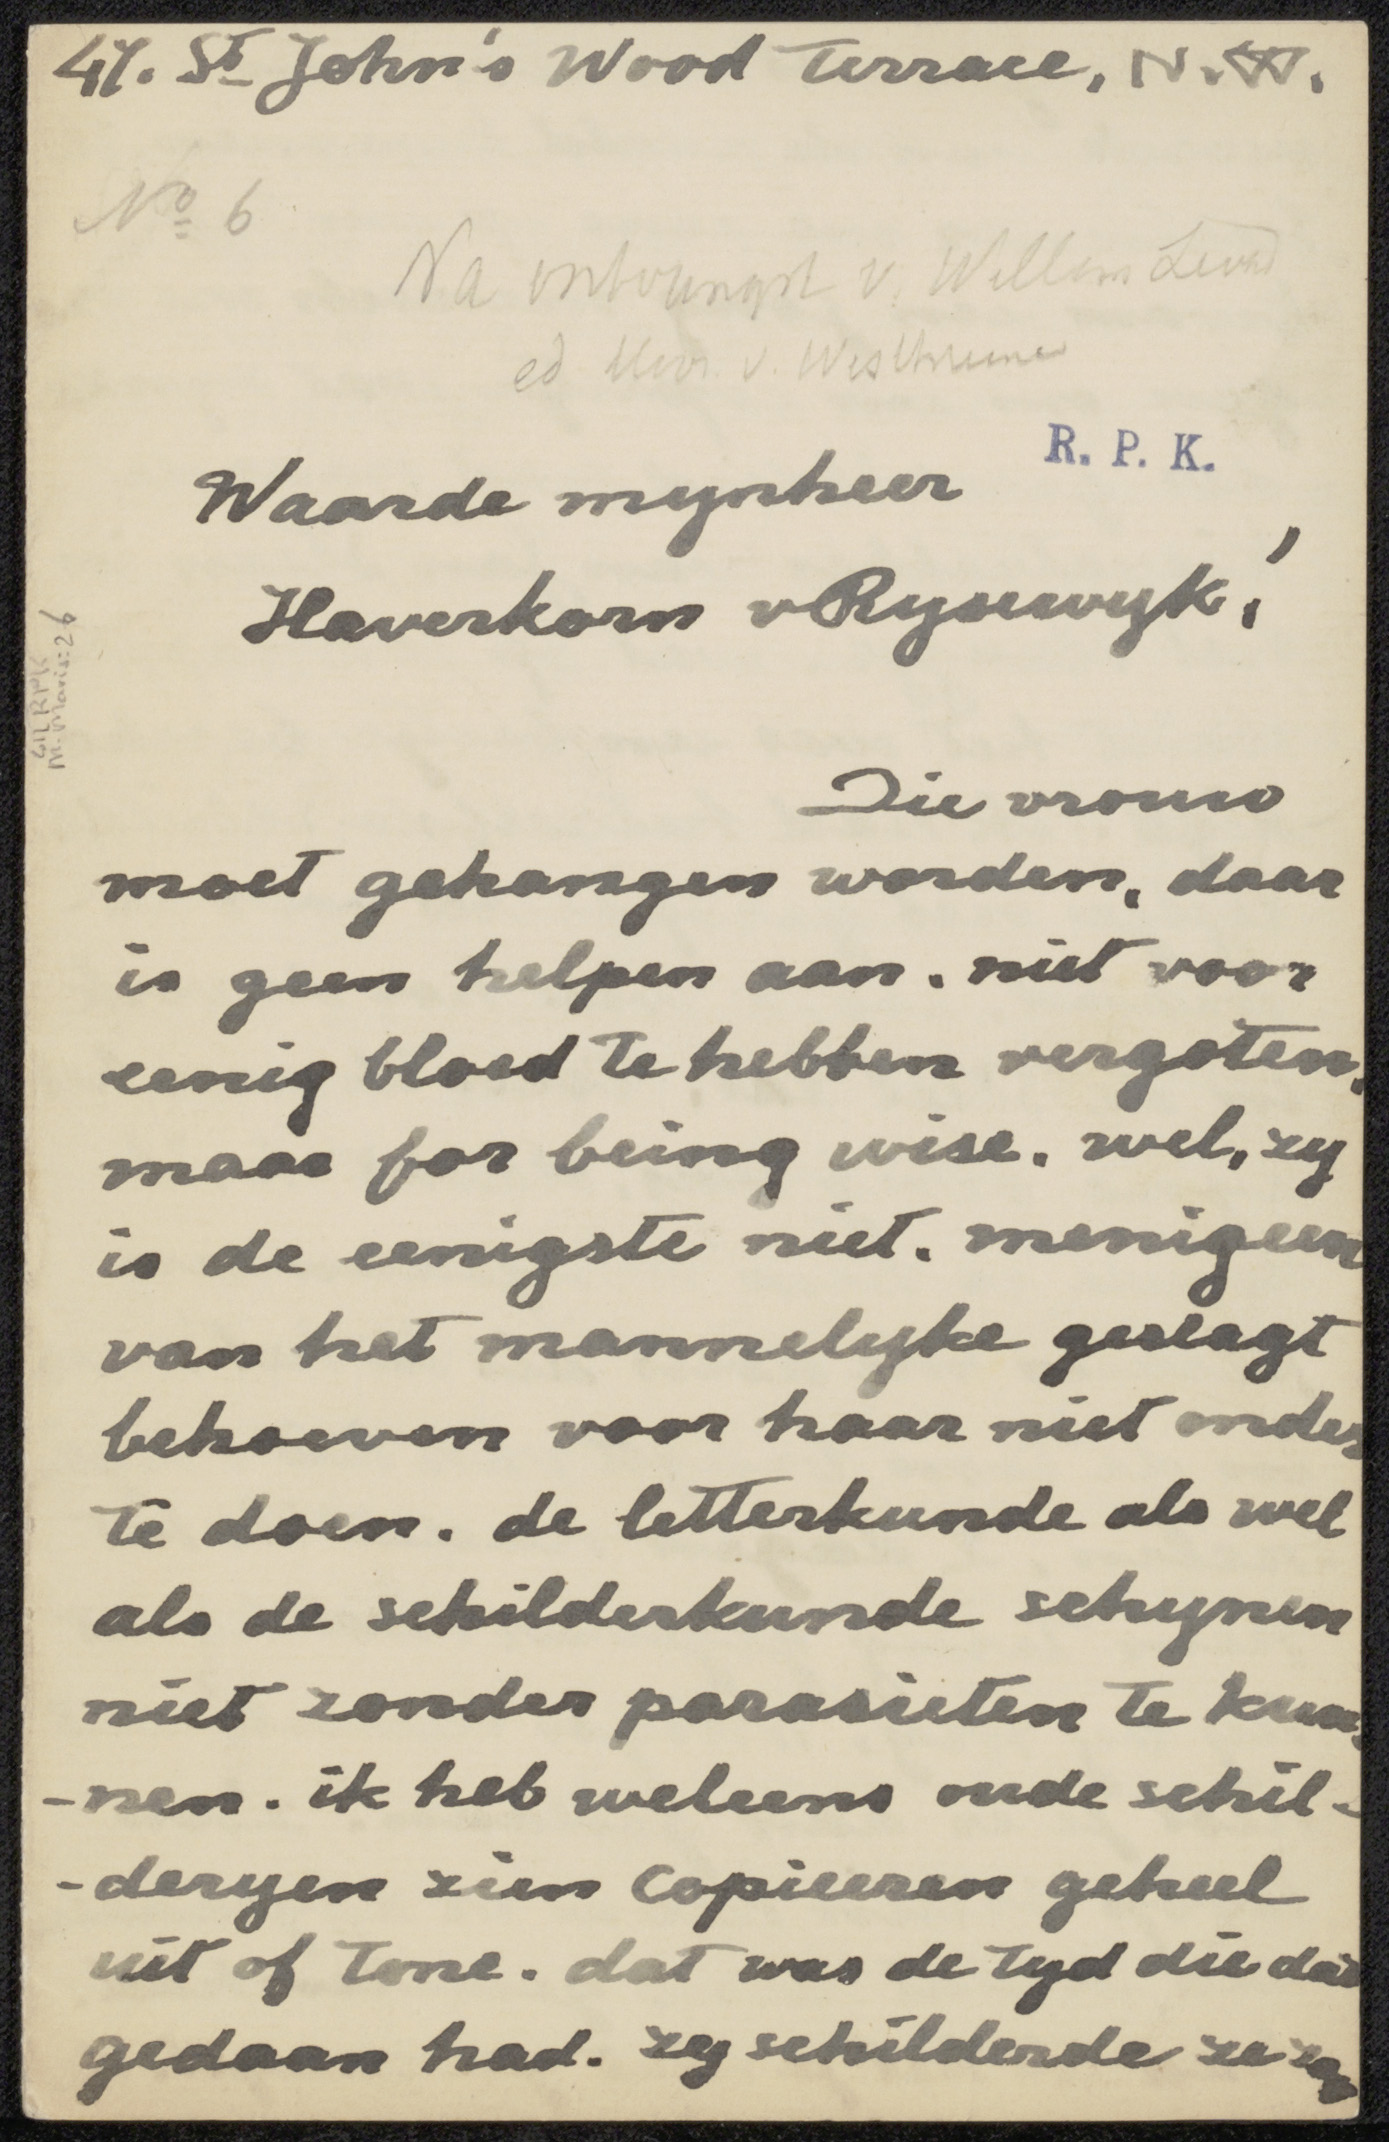 47. St John's Wood Terrace, N.W.
No 6
Na ontvangst v. Willem
ed v.
R. P. K.
Waarde mynheer
Haverkorn v Rysewyk!
M. Maris: 26
Die vrouw
moet gehangen worden, daar
is geen helpen aan. niet voor
eenig bloed te hebben vergoten,
maar for being wise. wel, zy
is de eenigste niet. menigeen
van het mannelyke geslagt
behoeven voor haar niet onder
te doen. de letterkunde als wel
als de schilderkunde schynen
niet zonder parasieten te kun-
-nen. ik heb weleens oude schil-
-deryen zien copieeren geheel
uit of tone. dat was de tyd die dat
gedaan had. zy schilderde ze